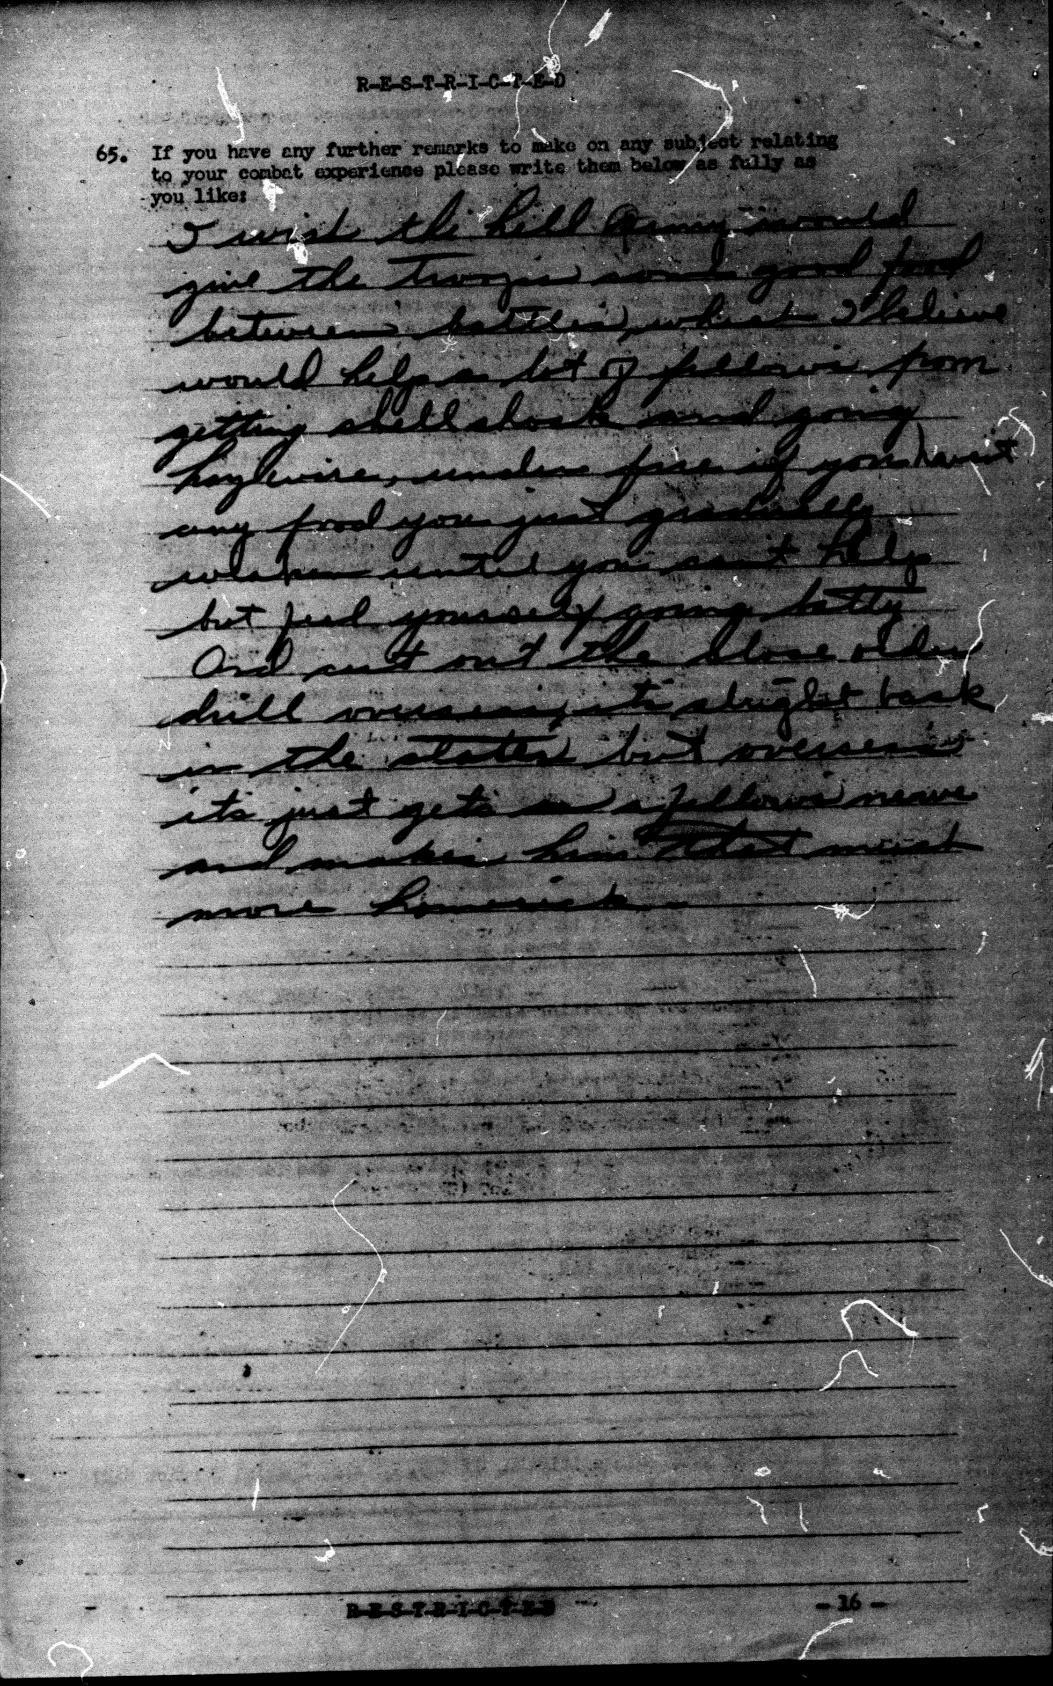 R-E-S-T-R-I-C-T-E-D
65. If you have any further remarks to make on any subject relating
to your combat experience please write them below as fully as
you like:
I wish the hell Army would
give the troops some good food
between battles, which I believe
would help a lot of fellows from
getting shell shock and going
haywire, under fire if you havent
any food you just gradually
weaken until you cant help
but feel yourself going batty
And cut out the close order
drill overseas, its alright back
in the states but overseas
its just gets on a fellows nerve
and makes him that much
more homesick
R-E-S-T-R-I-C-T-E-D
- 16 -